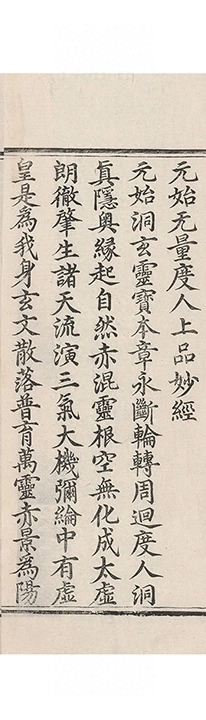 元始无量度人上品妙經
元始洞玄靈寳夲章永斷輪轉周迴度人洞
眞隱奥緣起自然赤混靈根空無化成太虛
朗徹肇生諸天流演三氣大機彌綸中有虛
皇是為我身玄文散落普育萬靈赤景為陽